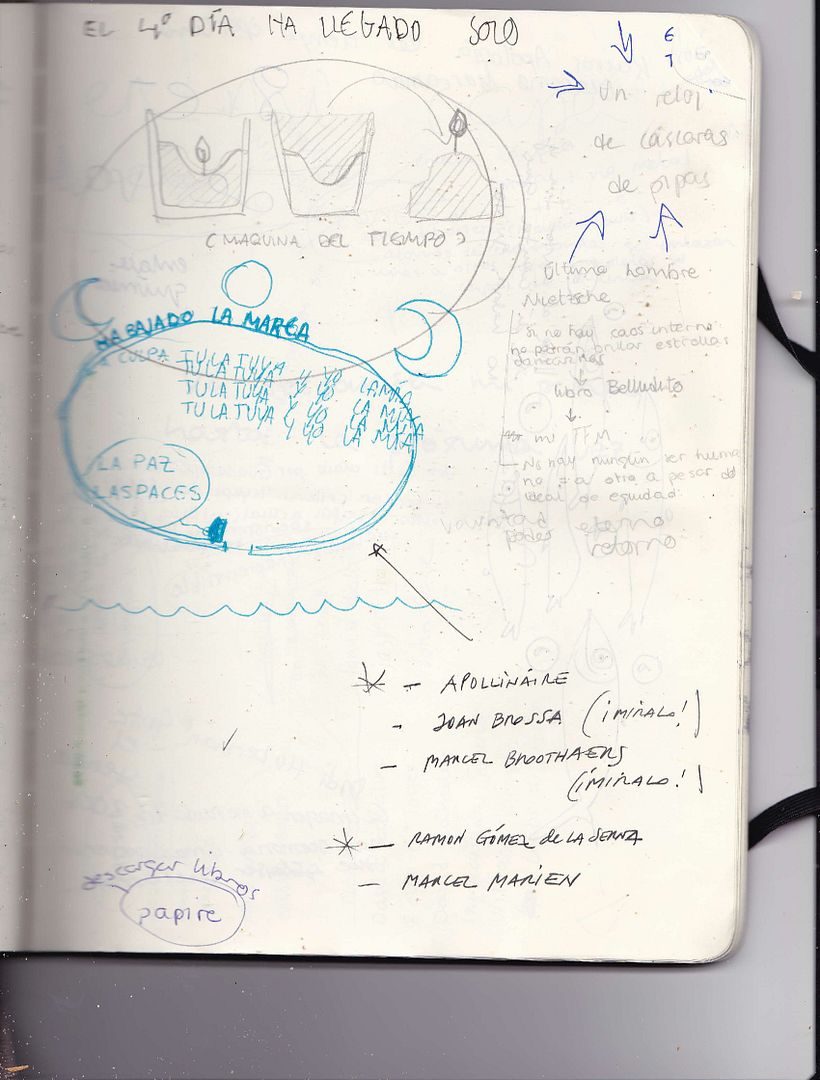 EL 4º DÍA HA LLEGADO SOLO
Un reloj
de cáscaras
de pipas
(MAQUINA DEL TIEMPO)
Último hombre
Nietzsche
- Si no hay caos interno
no podrán brillar estrellas
danzarinas
libro Bellustito
mi TFM
- No hay ningún ser huma
no = a otro a pesar del
ideal de equidad.
voluntad
poder
eterno
retorno
HA BAJADO LA MAREA
LA CULPA TU LA TUYA Y YO LA MÍA
TU LA TUYA Y YO LA MÍA
TU LA TUYA Y YO LA MÍA
TU LA TUYA Y YO LA MÍA
LA PAZ
LASPACES
- APOLLINAIRE
- JOAN BROSSA (¡MIRALO!)
- MARCEL BROOTHAERS
(¡MIRALO!)
- RAMON GÓMEZ de LA SERNA
- MARCEL MARIEN
descargar libros
papire